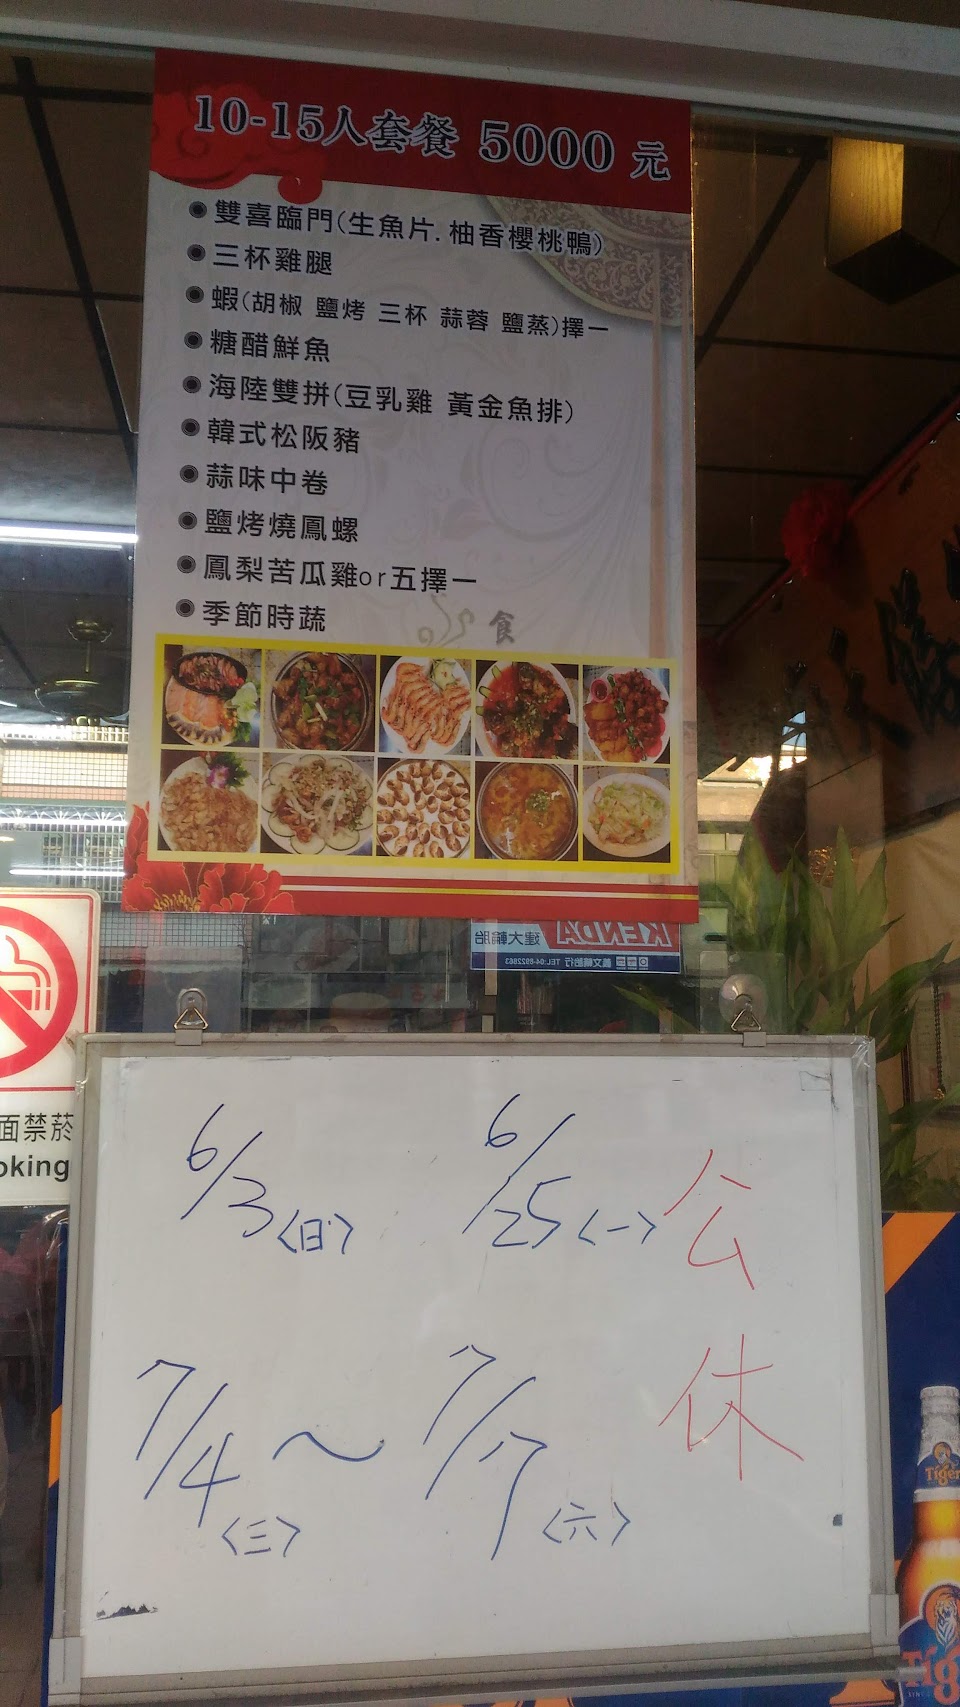 10-15人套餐 5000 元
雙喜臨門(生魚片.柚香櫻桃鴨)
三杯雞腿
蝦(胡椒 鹽烤 三杯 蒜蓉 鹽蒸)擇一
糖醋鮮魚
海陸雙拼(豆乳雞 黃金魚排)
韓式松阪豬
蒜味中卷
鹽烤燒鳳螺
鳳梨苦瓜雞or五擇一
季節時蔬
食
KENDA 建大輪胎
義文輪胎行 TEL:04-8922863
面禁菸
oking
6/3(日) 6/25(一) 公
7/4~7/7 休
(三) (六)
Tiger
Tig